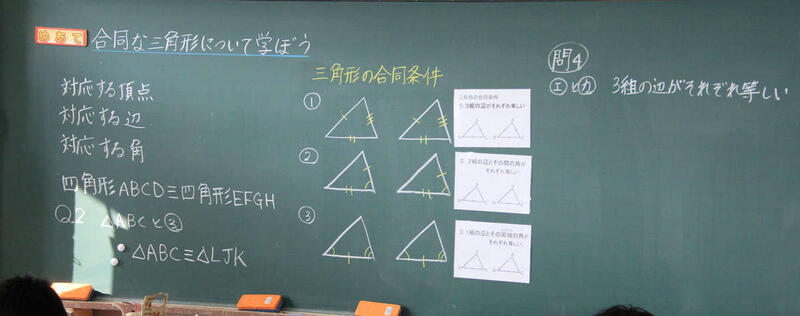 めあて 合同な三角形について学ぼう
対応する頂点
対応する辺
対応する角
四角形ABCD≡四角形EFGH
Q2 △ABCと③
△ABC≡△LJK
三角形の合同条件
①
三角形の合同条件
① 3組の辺がそれぞれ等しい
②
② 2組の辺とその間の角が
それぞれ等しい
③
③ 1組の辺とその両端の角が
それぞれ等しい
問4
エとカ 3組の辺がそれぞれ等しい